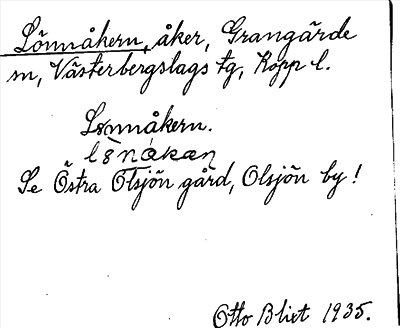 Lönnåkern, åker, Grangärde
sn, Västerbergslags tg, Kopp l.
Lönnåkern.
Se Östra Olsjön gård, Olsjön by!
Otto Blixt 1935.